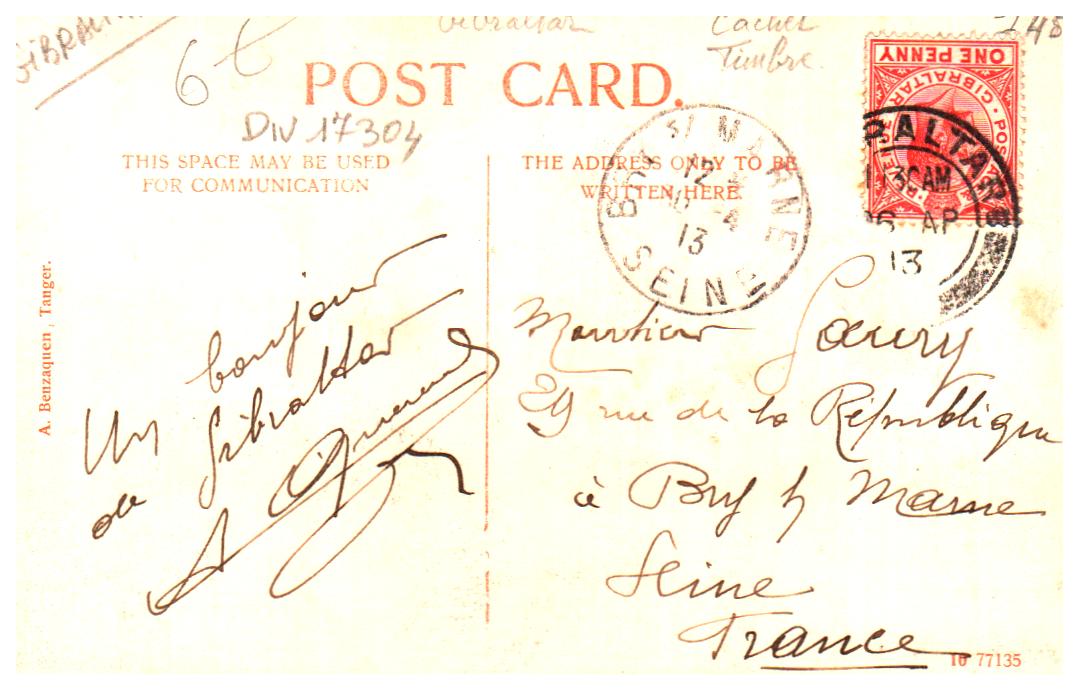 GIBRALTAR
6 t
Gibraltar
Cachet
Timbre
POST CARD.
DIV 17304
THIS SPACE MAY BE USED
FOR COMMUNICATION
THE ADDRESS ONLY TO BE
WRITTEN HERE.
BRY S/ MARNE
12
10 - 4
13
SEINE
ONE PENNY
GIBRALTAR
AM
AP
13
A. Benzaquen, Tanger.
Un bonjour
de Gibraltar
A
Monsieur
29 rue de la République
à Bry s/ Marne
Seine
France
10 77135